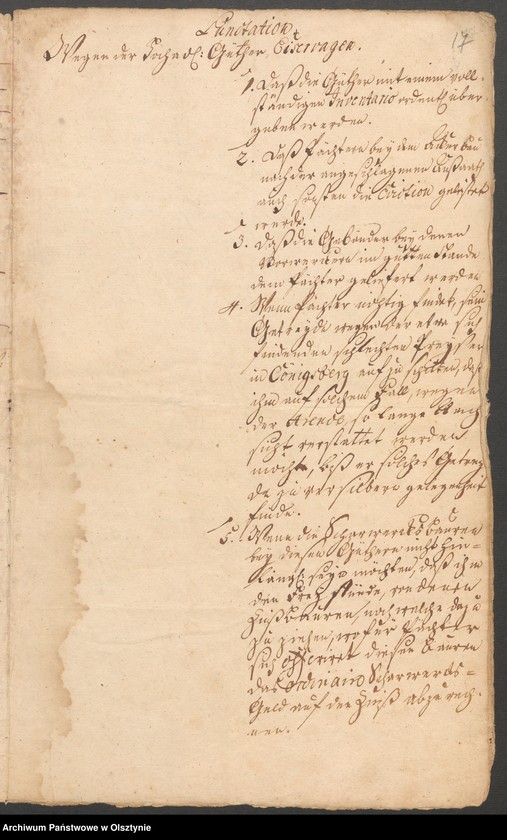 Punctation
Wegen der Hochadl: Güther Eiserwagen.
17
1. Daß die Güther mit einem voll-
ständigen Inventario ordentl über-
geben werden.
2. Daß Pächtern bey dem Ackerbau
nach der angeschlagenen Außaat
auch sonsten die Eviction geleistet
werde.
3. Daß die Gebäuder bey denen
Vorwerckern im gutten Stande
dem Pächter geliefert werden
4. Wenn Pächter nöthig findet, sein
Getreyde wegen der etwa sich
findenden schlechten Preyse
in Königsberg auf zu schütten, daß
ihm auf solchem Fall, wegen
der Arende, so lange Nach
sicht verstattet werden
möchte, biß er solches Getrey-
de zu versilbern gelegenheit
finde.
5. Wenn die Scharwercks Bauren
bey diesen Güthern nicht hin-
längl: seyn möchten, daß ihm
den frey stünde, von denen
Zinßbauren, noch welche dazu
zu ziehen, wofür Pächter
sich offeriret diesen Bauren
das ordinaire Scharwercks-
Geld auf den Zinß abzurech-
nen.
Archiwum Państwowe w Olsztynie